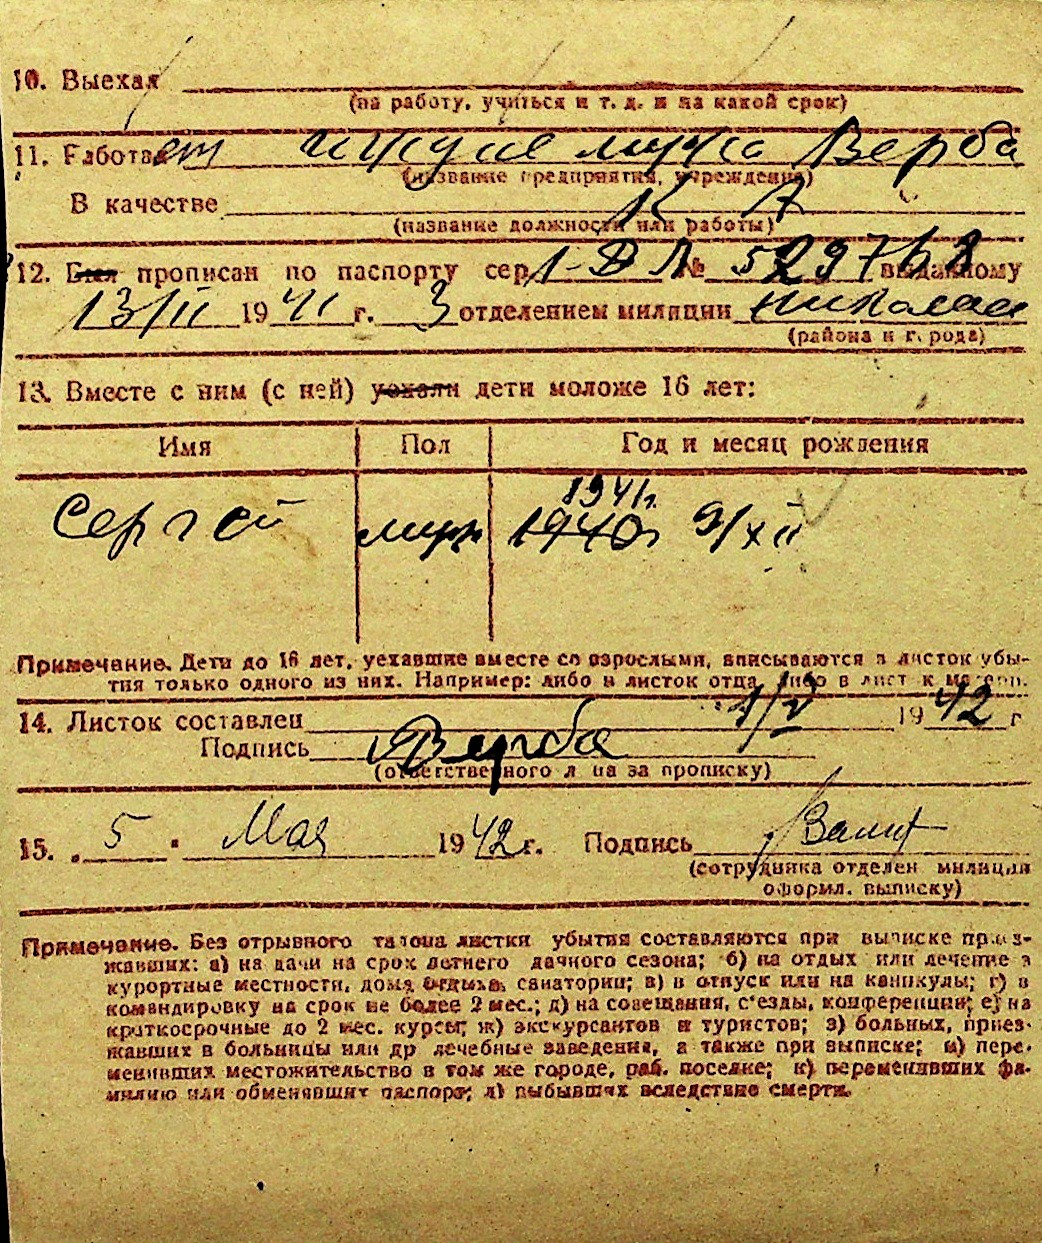 10. Выехал
(на работу, учиться и т. д. и на какой срок)
11. Работает иждие мужа Верба
(название предприятия, учреждения)
В качестве К А
(название должности или работы)
12. Был прописан по паспорту сер. № 529768 выданному
13/II 1941 г. 3 отделением милиции Николаев
(района и города)
13. Вместе с ним (с ней) уехали дети моложе 16 лет:
Имя Пол Год и месяц рождения
1941г.
Сергей муж 1940г 9/XII
Примечание. Дети до 16 лет, уехавшие вместе со взрослыми, вписываются в листок убы-
тия только одного из них. Например: либо в листок отца либо в лист к матери.
14. Листок составлен 1/V 1942 г
Подпись Верба
(ответственного л ца за прописку)
15. „5" Мая 1942 г. Подпись
(сотрудника отделен милиции
оформ. выписку)
Примечание. Без отрывного талона листки убытия составляются при выписке приез-
жавших: а) на дачи на срок летнего дачного сезона; б) на отдых или лечение в
курортные местности, дома отдыха, санатории; в) в отпуск или на каникулы; г) в
командировку на срок не более 2 мес.; д) на совещания, с'езды, конференции; е) на
краткосрочные до 2 мес. курсы; ж) экскурсантов и туристов; з) больных, приез-
жавших в больницы или др лечебные заведения, а также при выписке; и) пере-
менивших местожительство в том же городе, раб. поселке; к) переменивших фа-
милию или обменявших паспорт; л) выбывших вследствие смерти.